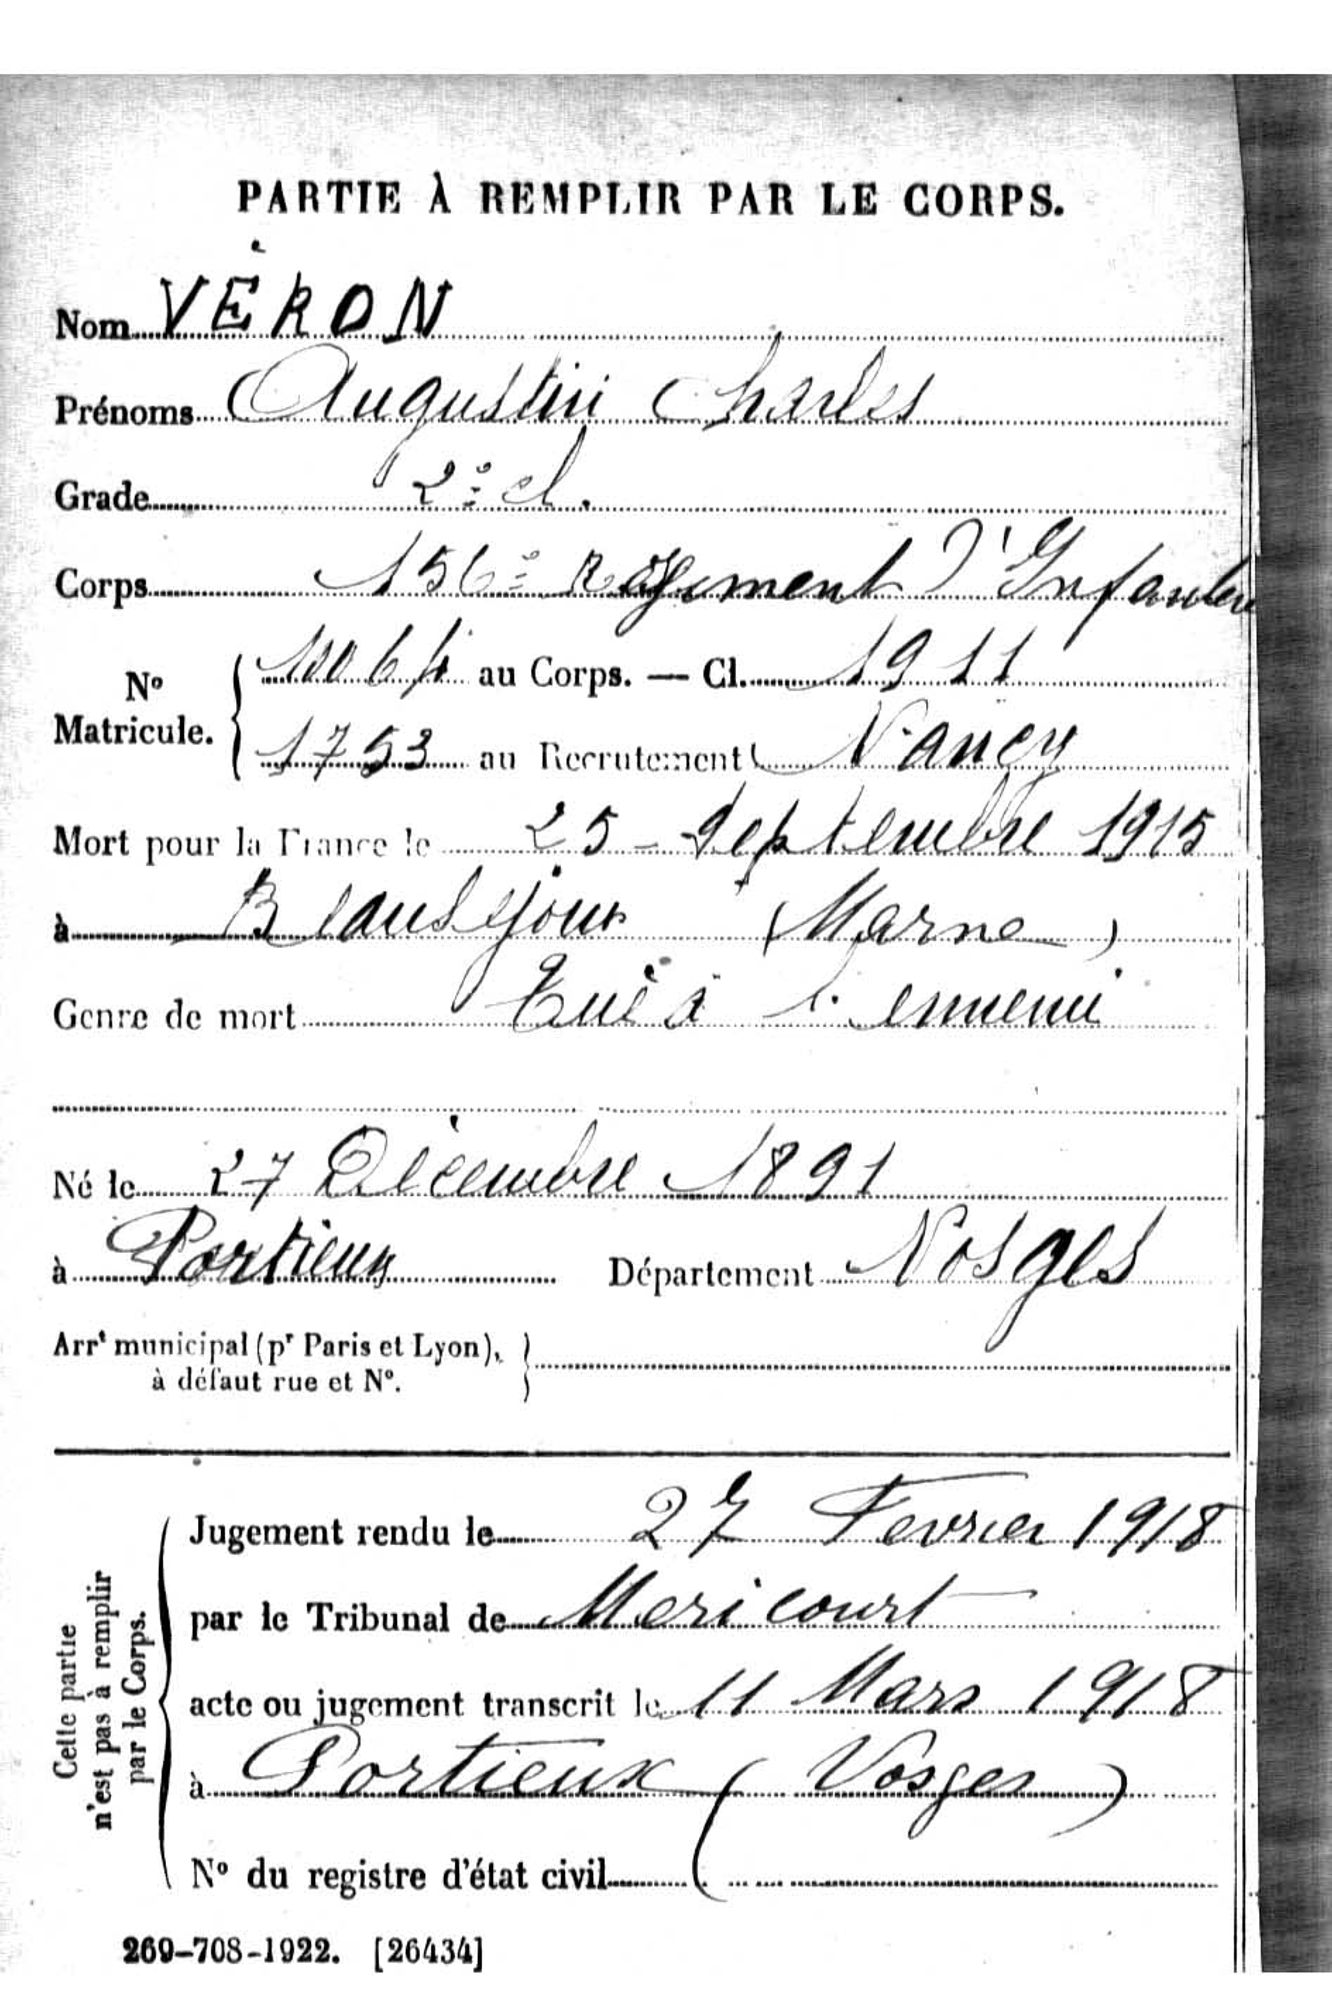 PARTIE À REMPLIR PAR LE CORPS.
Nom VÉRON
Prénoms Augustin Charles
Grade 2e cl.
Corps 156e Régiment d'Infanterie
No Matricule. au Corps. — Cl. 1911
1753 au Recrutement Nancy
Mort pour la France le 25 - Septembre 1915
à Beauséjour (Marne)
Genre de mort Tué à l'ennemi
Né le 27 Décembre 1891
à Portieux Département Vosges
Arrt municipal (pr Paris et Lyon),
à défaut rue et No.
Cette partie
n'est pas à remplir
par le Corps.
Jugement rendu le 27 Fevrier 1918
par le Tribunal de Mericourt
acte ou jugement transcrit le 11 Mars 1918
à Portieux (Vosges)
No du registre d'état civil
269-708-1922. [26434]